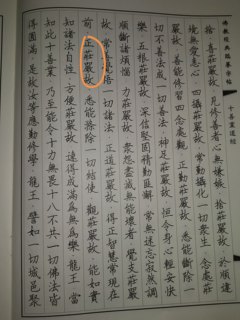 佛教經典臨摹字帖
十善業道經
捨喜莊嚴故 見修善者心無嫌嫉 捨莊嚴故 於順違
境無愛恚心 四攝莊嚴故 常勤攝化一切眾生 念處莊
嚴故 善能修習四念處觀 正勤莊嚴故 悉能斷除一
切不善法成一切善法 神足莊嚴故 恒令身心輕安快
樂 五根莊嚴故 深信堅固精勤匪懈 常無迷忘寂然調
順斷諸煩惱 力莊嚴故 眾怨盡滅無能壞者 覺支莊嚴
故 常善覺悟一切諸法 正道莊嚴故 得正智慧常現在
前 正莊嚴故 悉能滌除一切結使 觀莊嚴故 能如實
知諸法自性 方便莊嚴故 速得成滿為無為樂 龍王當
知此十善業 乃至能令十力無畏十八不共一切佛法皆
得圓滿 是故汝等應勤修學 龍王 譬如一切城邑聚